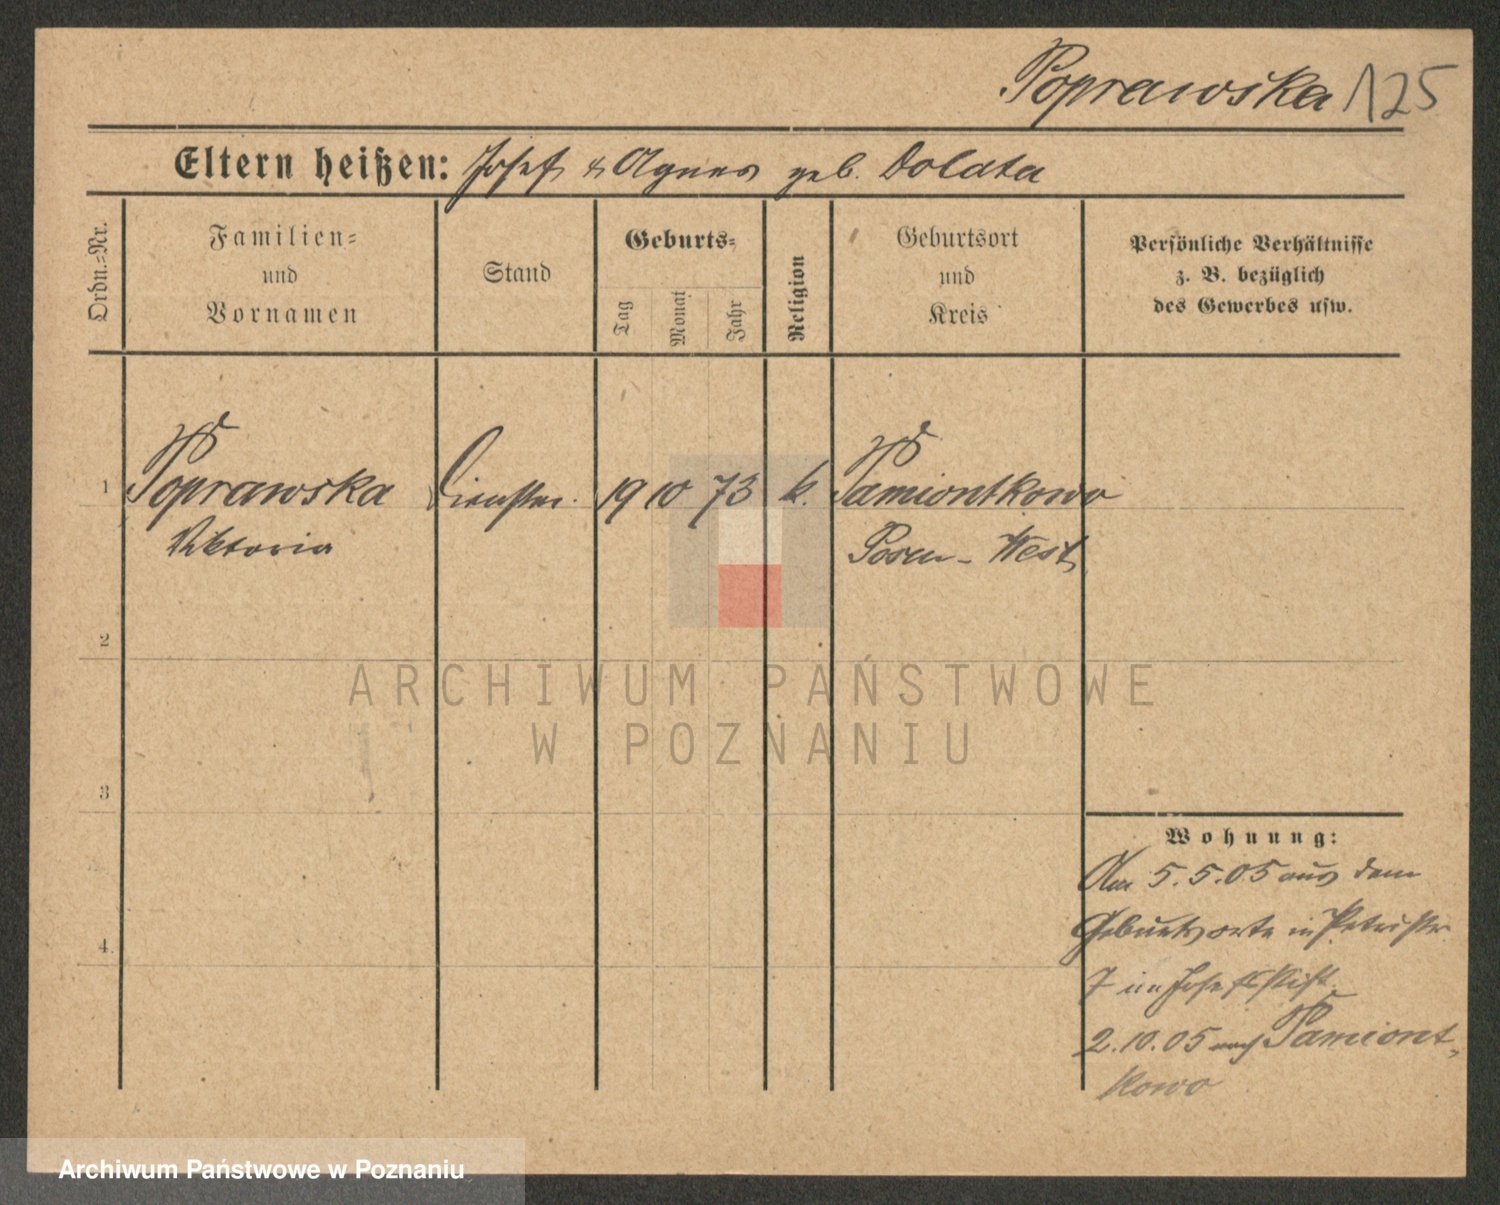 Poprawska 125
Eltern heißen: Josef & Agnes geb. Dolata
Ordn.=Nr.
Familien=
und
Vornamen
Stand
Geburts=
Tag
Monat
Jahr
Religion
Geburtsort
und
Kreis
Persönliche Verhältnisse
z. B. bezüglich
des Gewerbes usw.
1 Poprawska 19 10 73 k. Pamiontkowo
Viktoria Posen-West
2
3
4.
Wohnung:
Am 5.5.05 aus dem
Geburtsorte in Petristr
7 im Josefstift
2.10.05 nach Pamiont-
kowo
ARCHIWUM PAŃSTWOWE
W POZNANIU
Archiwum Państwowe w Poznaniu